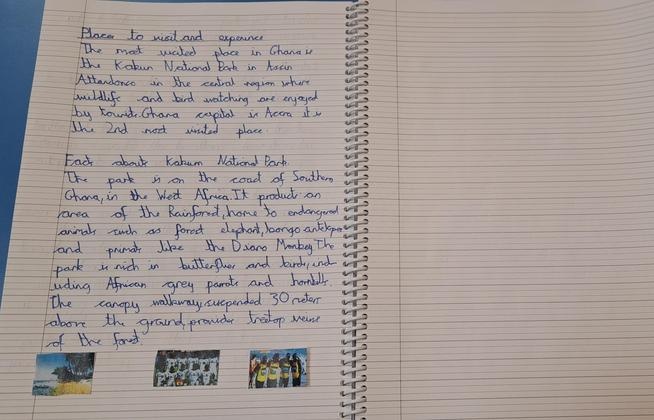 Places to visit and experience
The most visited place in Ghana is
the Kakum National Park in Assin
Attandanso in the central region where
wildlife and bird watching are enjoyed
by tourists. Ghana capital is Accra it is
the 2nd most visited place.
Facts about Kakum National Park.
The park is on the coast of Southern
Ghana, in the West Africa. It protects an
area of the Rainforest, home to endangered
animals such as forest elephant, bongo antelope
and primates like the Diana Monkey. The
park is rich in butterflies and birds, incl-
uding African grey parrots and hornbills.
The canopy walkway, suspended 30 meters
above the ground, provides treetop views
of the forest.